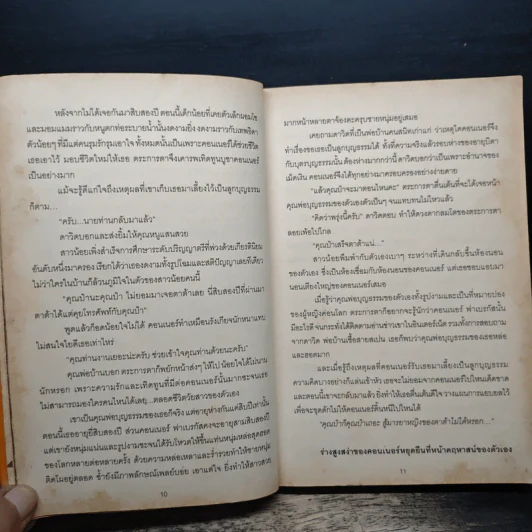 หลังจากไม่ได้เจอกันมาสิบสองปี ตอนนี้เด็กน้อยที่เคยตัวเล็กมอมแมม
และมอมแมมราวกับหนูตกท่อระบายน้ำนั้นงดงามยิ่ง งดงามราวกับเทพธิดา
ตัวน้อยๆ ที่มีแต่คนรุมรักรุมเอาใจ ทั้งหมดนั้นเป็นเพราะคอนเนอร์ได้ช่วยชีวิต
เธอเอาไว้ มอบชีวิตใหม่ให้เธอ ตระการตาจึงเคารพเทิดทูนบูชาคอนเนอร์
เป็นอย่างมาก
แม้จะรู้ดีแก่ใจถึงเหตุผลที่เขาเก็บเธอมาเลี้ยงไว้เป็นลูกบุญธรรม
ก็ตาม...
“ครับ...นายท่านกลับมาแล้ว”
ดาวิดบอกและส่งยิ้มให้คุณหนูแสนสวย
สาวน้อยเพิ่งสำเร็จการศึกษาระดับปริญญาตรีที่พ่วงด้วยเกียรตินิยม
อันดับหนึ่งมาครอง เรียกได้ว่าเธองดงามทั้งรูปโฉมและสติปัญญาเลยทีเดียว
ไม่ว่าใครในบ้านก็ล้วนภูมิใจในตัวของสาวน้อยคนนี้
“คุณป๋านะคุณป๋า ไม่ยอมมาเจอตาต้าเลย นี่สิบสองปีที่ผ่านมา
ตาต้าได้แต่คุยโทรศัพท์กับคุณป๋า”
พูดแล้วก็อดน้อยใจไม่ได้ คอนเนอร์ทำเหมือนรังเกียจนักหนาแทบ
ไม่สนใจไยดีเธอเท่าไหร่
“คุณท่านงานเยอะน่ะครับ ช่วยเข้าใจคุณท่านด้วยนะครับ”
คุณพ่อบ้านบอก ตระการตาก็พยักหน้าส่งๆ ให้ไป น้อยใจได้ไม่นาน
นักหรอก เพราะความรักและเทิดทูนที่มีต่อคอนเนอร์นั้นมากซะจนเธอ
ไม่สามารถมองใครคนไหนได้เลย...ตลอดชีวิตวัยสาวของตัวเอง
เขาเป็นคุณพ่อบุญธรรมของเธอก็จริง แต่อายุห่างกันแค่สิบปีเท่านั้น
ตอนนี้เธออายุยี่สิบสองปี ส่วนคอนเนอร์ ฟาเบรกัสคงจะอายุสามสิบสองปี
แต่เขายังหนุ่มแน่นและรูปงามซะจนได้รับโหวตให้ขึ้นแท่นหนุ่มหล่อสุดฮอต
ของโลกมาหลายต่อหลายครั้ง ด้วยความหล่อเหลาและร่ำรวยทำให้ชายหนุ่ม
ติดโผอยู่ตลอด ซ้ำยังมีภาพลักษณ์เพลย์บอย เอาแต่ใจ ยิ่งทำให้สาวสวย
10
มากหน้าหลายตาจ้องตะครุบชายหนุ่มอยู่เสมอ
เคยถามดาวิดที่เป็นพ่อบ้านคนสนิทเก่าแก่ ว่าเหตุใดคอนเนอร์จึง
ทำเรื่องรับเธอเป็นลูกบุญธรรมได้ ทั้งที่ความจริงแล้วรอบห่างของอายุบิดา
กับบุตรบุญธรรมนั้น ต้องห่างมากกว่านี้ ดาวิดบอกว่าเป็นเพราะอำนาจของ
เม็ดเงิน คอนเนอร์จึงได้ทุกอย่างมาครอบครองอย่างง่ายดาย
“แล้วคุณป๋าจะมาตอนไหนคะ” ตระการตาตื่นเต้นที่จะได้เจอหน้า
คุณพ่อบุญธรรมของตัวเองตัวเป็นๆ จนแทบทนไม่ไหวแล้ว
“คิดว่าพรุ่งนี้ครับ” ดาวิดตอบ ทำให้ดวงตากลมโตของตระการตา
ลอยเพ้อไปไกล
“คุณป๋าเสร็จตาต้าแน่...”
สาวน้อยพึมพำกับตัวเองเบาๆ ระหว่างที่เดินกลับขึ้นห้องนอน
ของตัวเอง ซึ่งเป็นห้องเชื่อมกับห้องนอนของคอนเนอร์ แต่เธอชอบแอบมา
นอนเตียงใหญ่ของคอนเนอร์เสมอ
เมื่อรู้ว่าคุณพ่อบุญธรรมของตัวเองทั้งรูปงามและเป็นที่หมายปอง
ของผู้หญิงค่อนโลก ตระการตาก็อยากจะรู้นักว่าคอนเนอร์ ฟาเบรกัสนั้น
มีอะไรดี จนกระทั่งได้ติดตามอ่านข่าวเขาในอินเตอร์เน็ต รวมทั้งการสอบถาม
จากดาวิด พ่อบ้านเชื้อสายสเปน เธอก็พบว่าคุณพ่อบุญธรรมของเธอหล่อ
และฮอตมาก
และเมื่อรู้ถึงเหตุผลที่คอนเนอร์รับเธอมาเลี้ยงเป็นลูกบุญธรรม
ความคิดบางอย่างก็แล่นเข้าหัว เธอจะไม่ยอมจากคอนเนอร์ไปไหนเด็ดขาด
และตอนนี้เขาจะกลับมาแล้ว ยิ่งทำให้เธอตื่นเต้นดีใจ วางแผนการแยบยลไว้
เพื่อจะฉุดรักไม่ให้คอนเนอร์ดิ้นหนีไปไหนได้
“คุณป๋าก็คุณป๋าเถอะ สู้มารยาหญิงของตาต้าไม่ได้หรอก...”
ร่างสูงสง่าของคอนเนอร์หยุดยืนที่หน้าคฤหาสน์ของตัวเอง
11